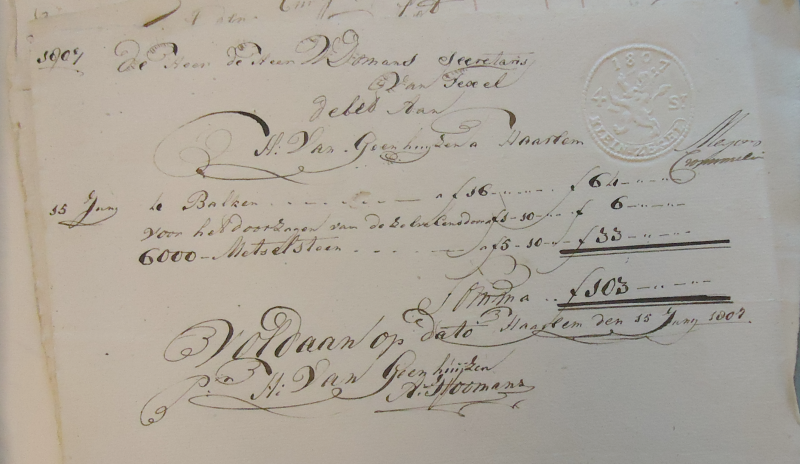 1807 De Heer de Heer W Homans Secretaris
Van Texel
debet Aan
H: Van Geenhuijzen a Haarlem
1807
4 St
KLEIN ZEGEL
15 Juny 4 Balken a f 16 - " - f 64 - " - "
voor het doorzagen van de f 1 - 10 - f 6 - " - "
6000 - Metselsteen a f 5 - 10 - f 33 - " - "
Somma f 103 - " - "
Voldaan op dato Haarlem den 15 Juny 1807
P: H: Van Geenhuijzen